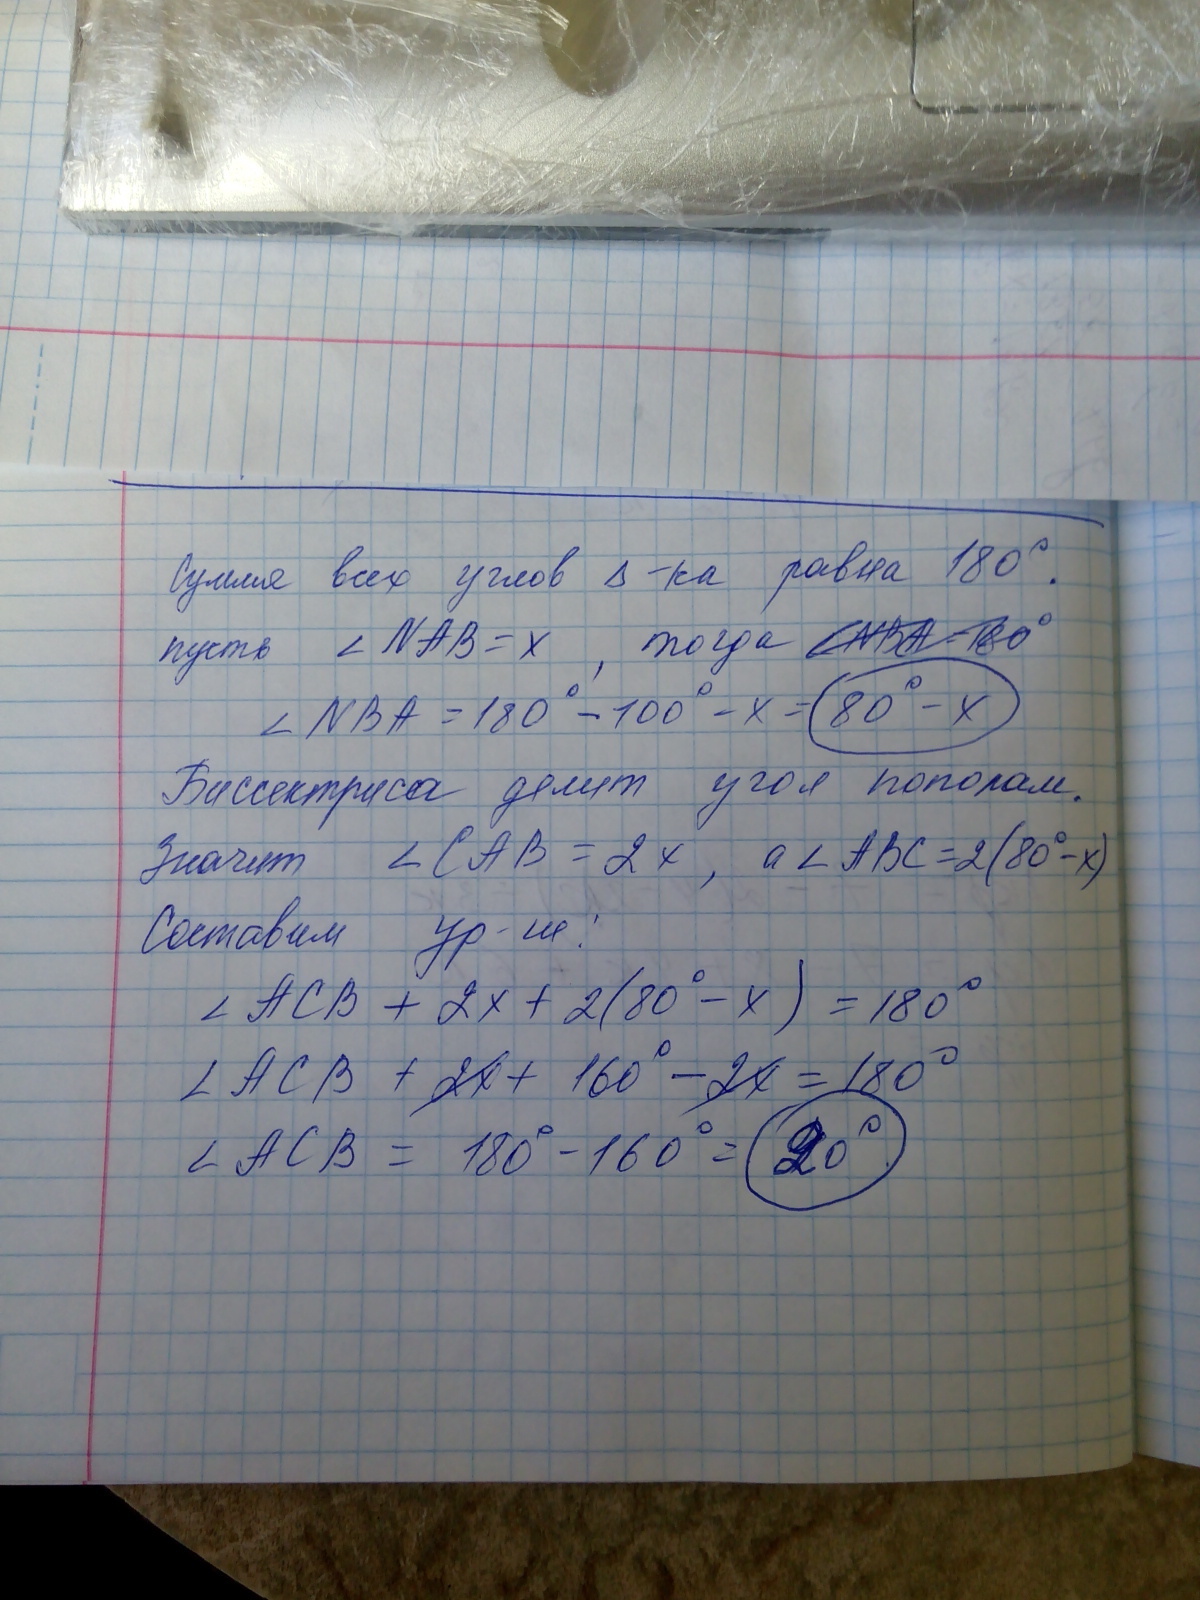 Сумма всех углов Δ-ка равна 180°.
пусть ∠NAB = x, тогда ∠NBA = 180°
∠NBA = 180° - 100° - x = 80° - x
Биссектриса делит угол пополам.
Значит ∠CAB = 2x, а ∠ABC = 2(80° - x)
Составим ур-ие:
∠ACB + 2x + 2(80° - x) = 180°
∠ACB + 2x + 160° - 2x = 180°
∠ACB = 180° - 160° = 20°